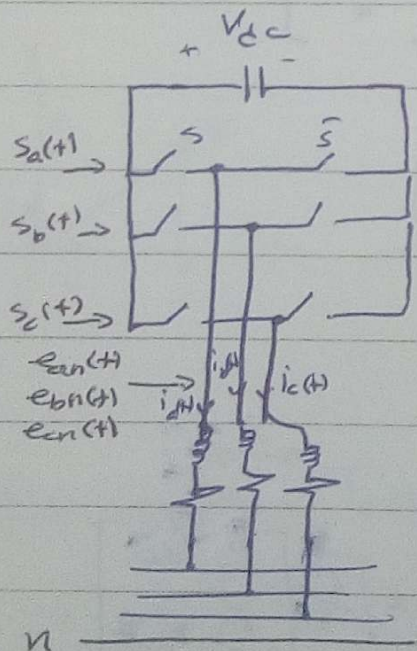 Vdc
+ -
Sa(t) S S̄
Sb(t)
Sc(t)
ean(t)
ebn(t)
ecn(t)
ic(t)
n